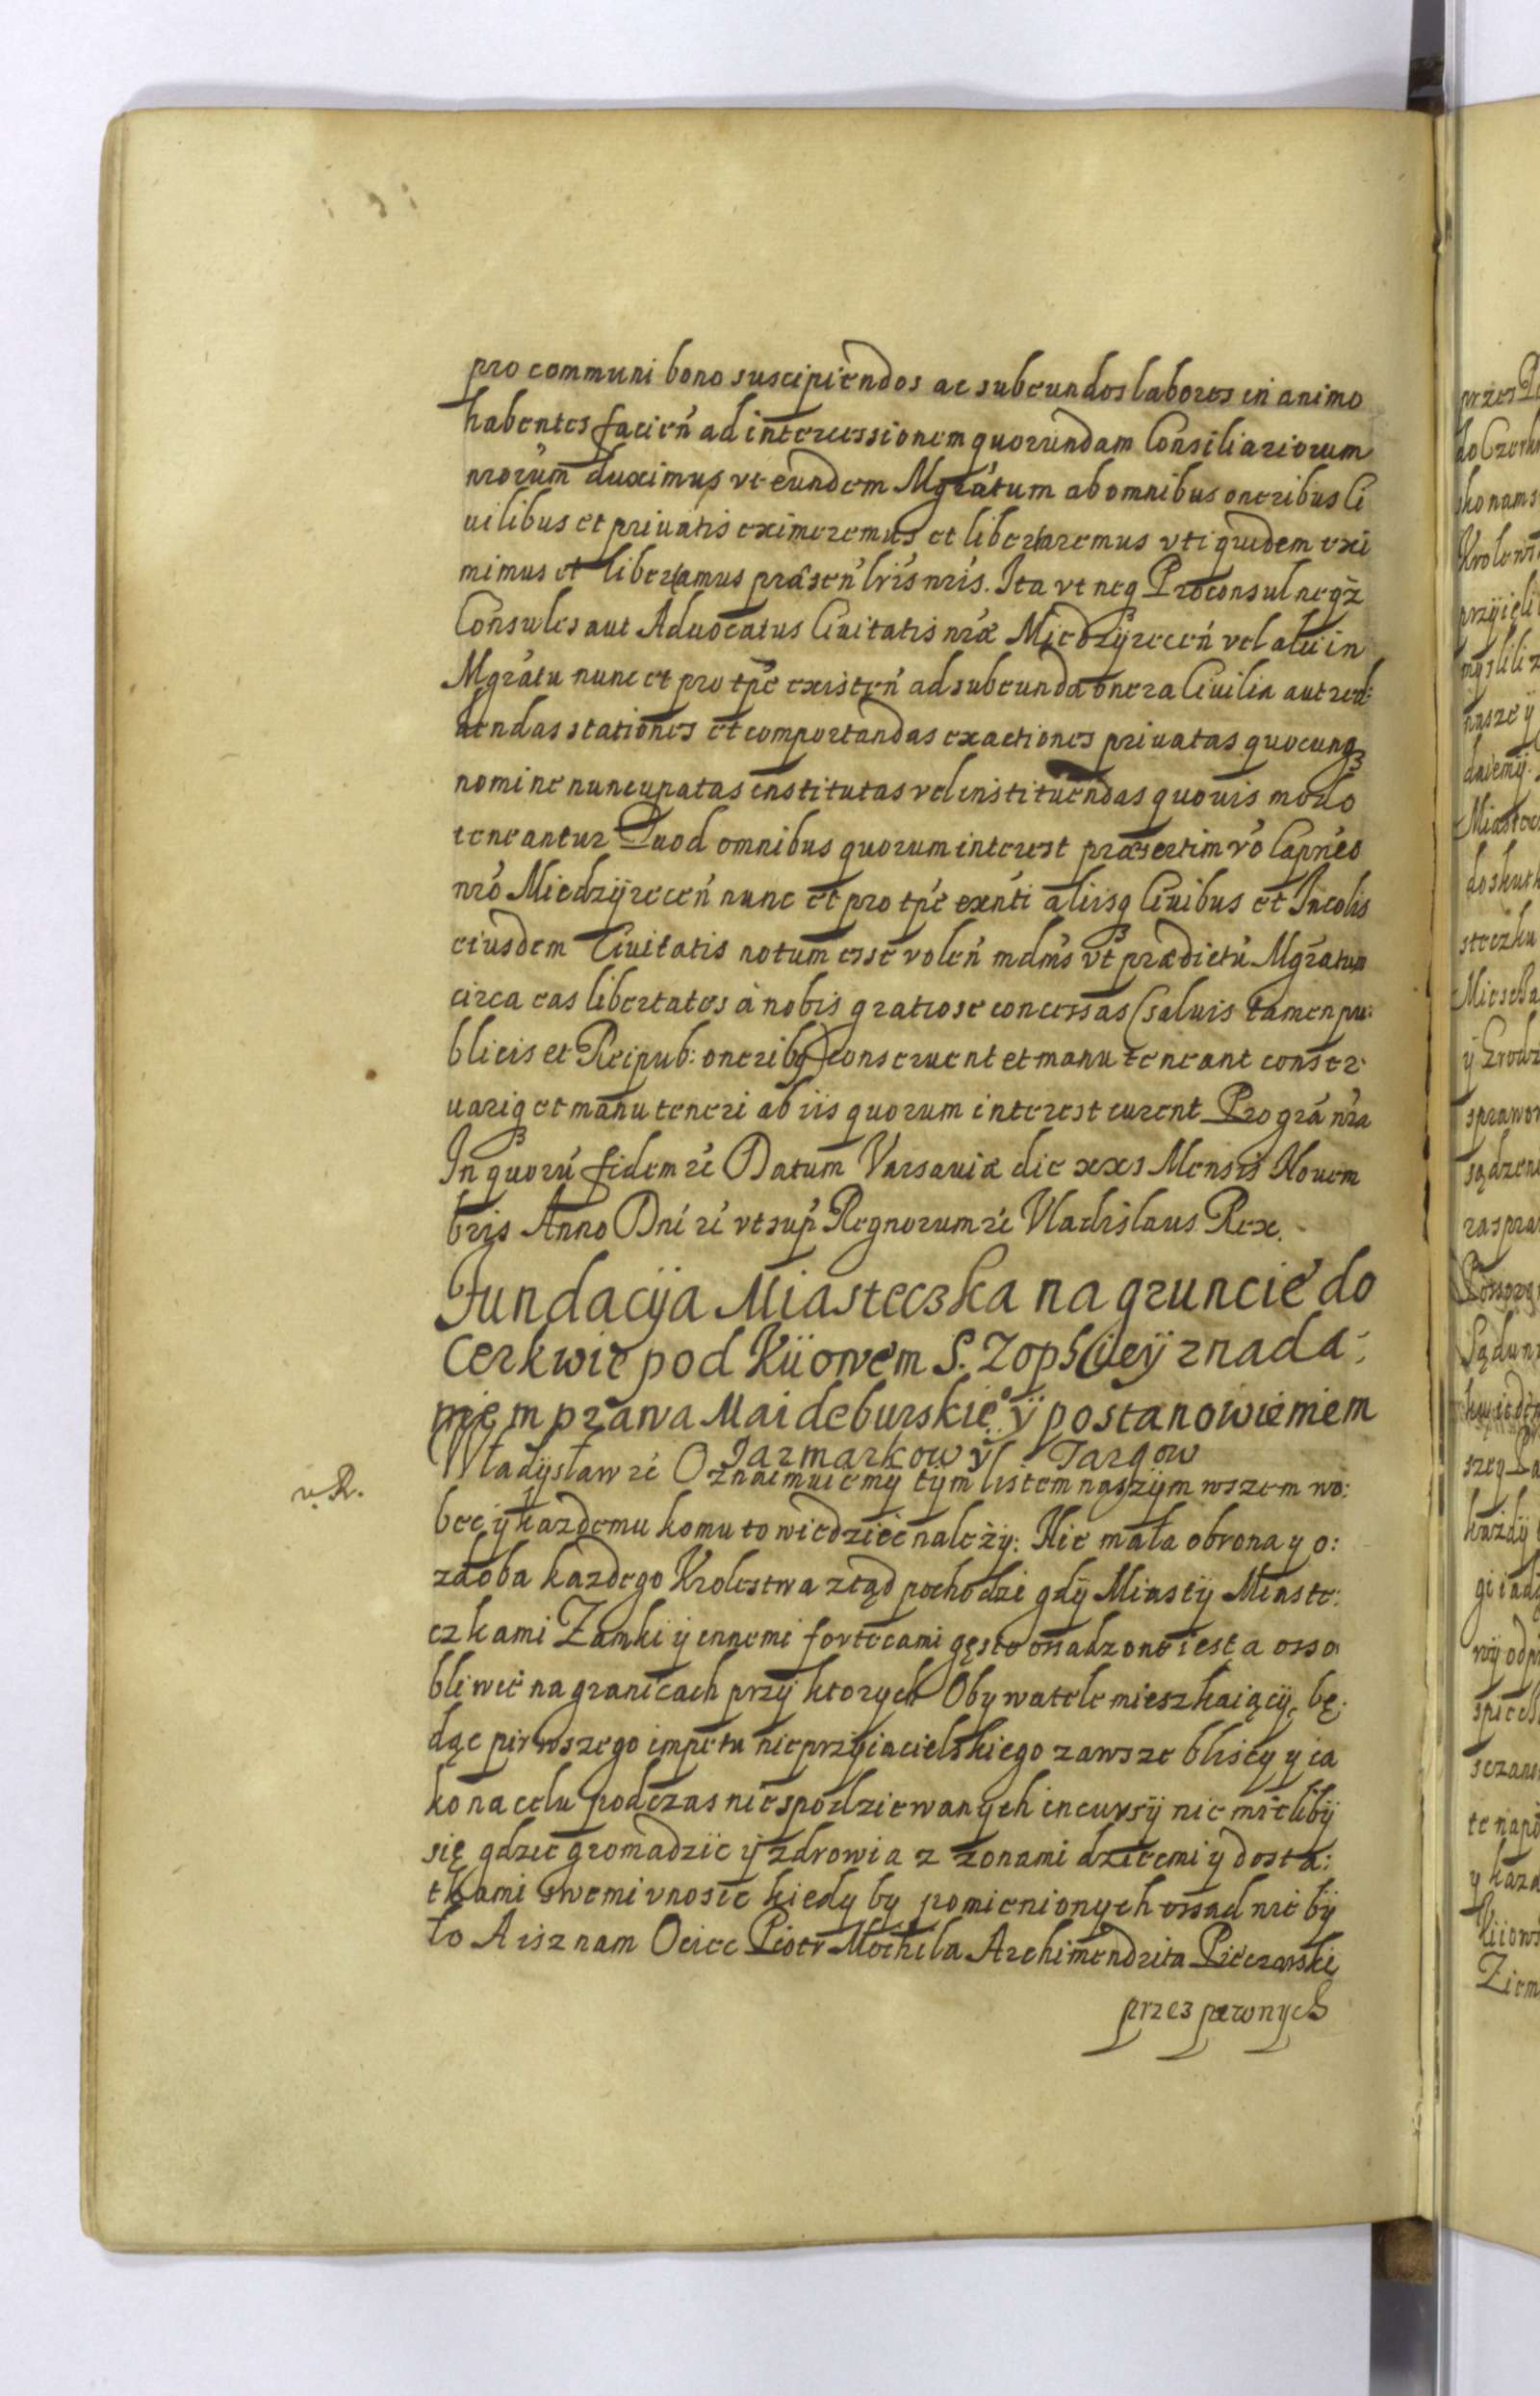 pro communi bono suscipiendos ac subeundos labores in animo
habentes facień ad intercessionem quorundam Consiliariorum
nrorum duximus vt eundem Mgratum ab omnibus oneribus Ci
uilibus et priuatis eximeremus et libertaremus vti quidem exi
mimus et libertamus præsen̄ lris nris. Ita vt neq3 Proconsul neq3
Consules aut Aduocatus Ciuitatis nræ Miedzÿrecen̄ vel alii in
Mgratu nunc et pro tp̄e existen̄ ad subeunda onera Ciuilia aut red:
dendas stationes et comportandas exactiones priuatas quocunq3
nomine nuncupatas institutas vel instituendas quouis modo
teneantur Quod omnibus quorum interest præsertim vo Capneo
nro Miedzÿrecen̄ nunc et pro tp̄e exnti aliisq3 Ciuibus et Incolis
eiusdem Ciuitatis notum esse volen̄ mdms vt prædictu Mgratum
circa eas libertates à nobis gratiose concessas (saluis tamen pu:
blicis et Reipub: oneribq) conseruent et manu teneant conser:
uariq3 et manu teneri ab iis quorum interest curent Pro gra nra
In quoru fidem rc Datum Varsauiæ die xxj Mensis Nouem
bris Anno Dni rc vt sup Regnorum rc Vladislaus Rex.
Fundacÿa Miasteczka na gruncie do
Cerkwie pod Kiiowem S. Zophÿeÿ z nada:
niem prawa Maideburskie° ÿ postanowieniem
Jarmarkow ÿ Targow
v. R.
Władÿsław rc Oznaimuiemÿ tÿm listem naszÿm wszem wo:
bec ÿ każdemu komu to wiedziec należÿ: Nie mała obrona y o:
zdoba kazdego Krolestwa ztąd pochodzi gdÿ Miastÿ Miaste:
czkami Zamki ÿ innemi fortecami gęsto ossadzone iest a osso
bliwie na granicach przÿ ktorych Obywatele mieszkaiącÿ, bę:
dąc pirwszego impetu nieprzÿiacielskiego zawsze bliscy y ia
ko na celu podczas niespodziewanych incursÿ nie mielibÿ
się gdzie gromadzic ÿ zdrowia z zonami dziecmi ÿ dosta:
tkami swemi vnosic kiedy by pomienionych ossad nie bÿ
ło A isz nam Ociec Piotr Mochila Archimendrita Pieczarski
przez pewnych